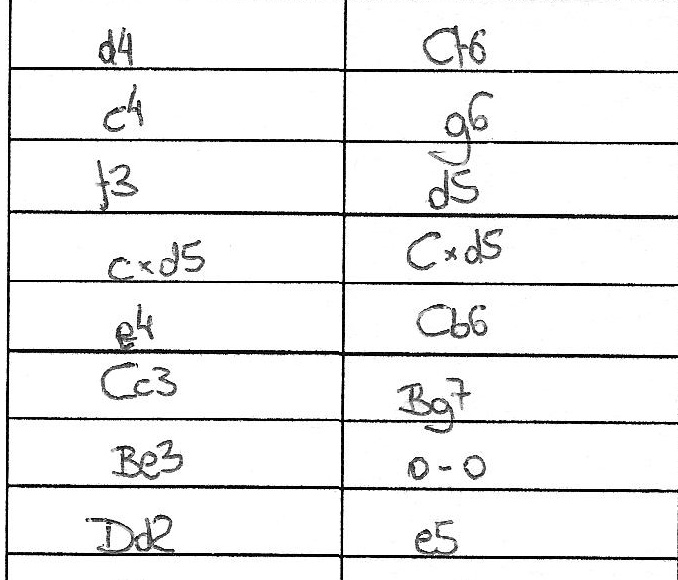 d4 Cf6
c4 g6
f3 d5
cxd5 Cxd5
e4 Cb6
Cc3 Bg7
Be3 0-0
Dd2 e5